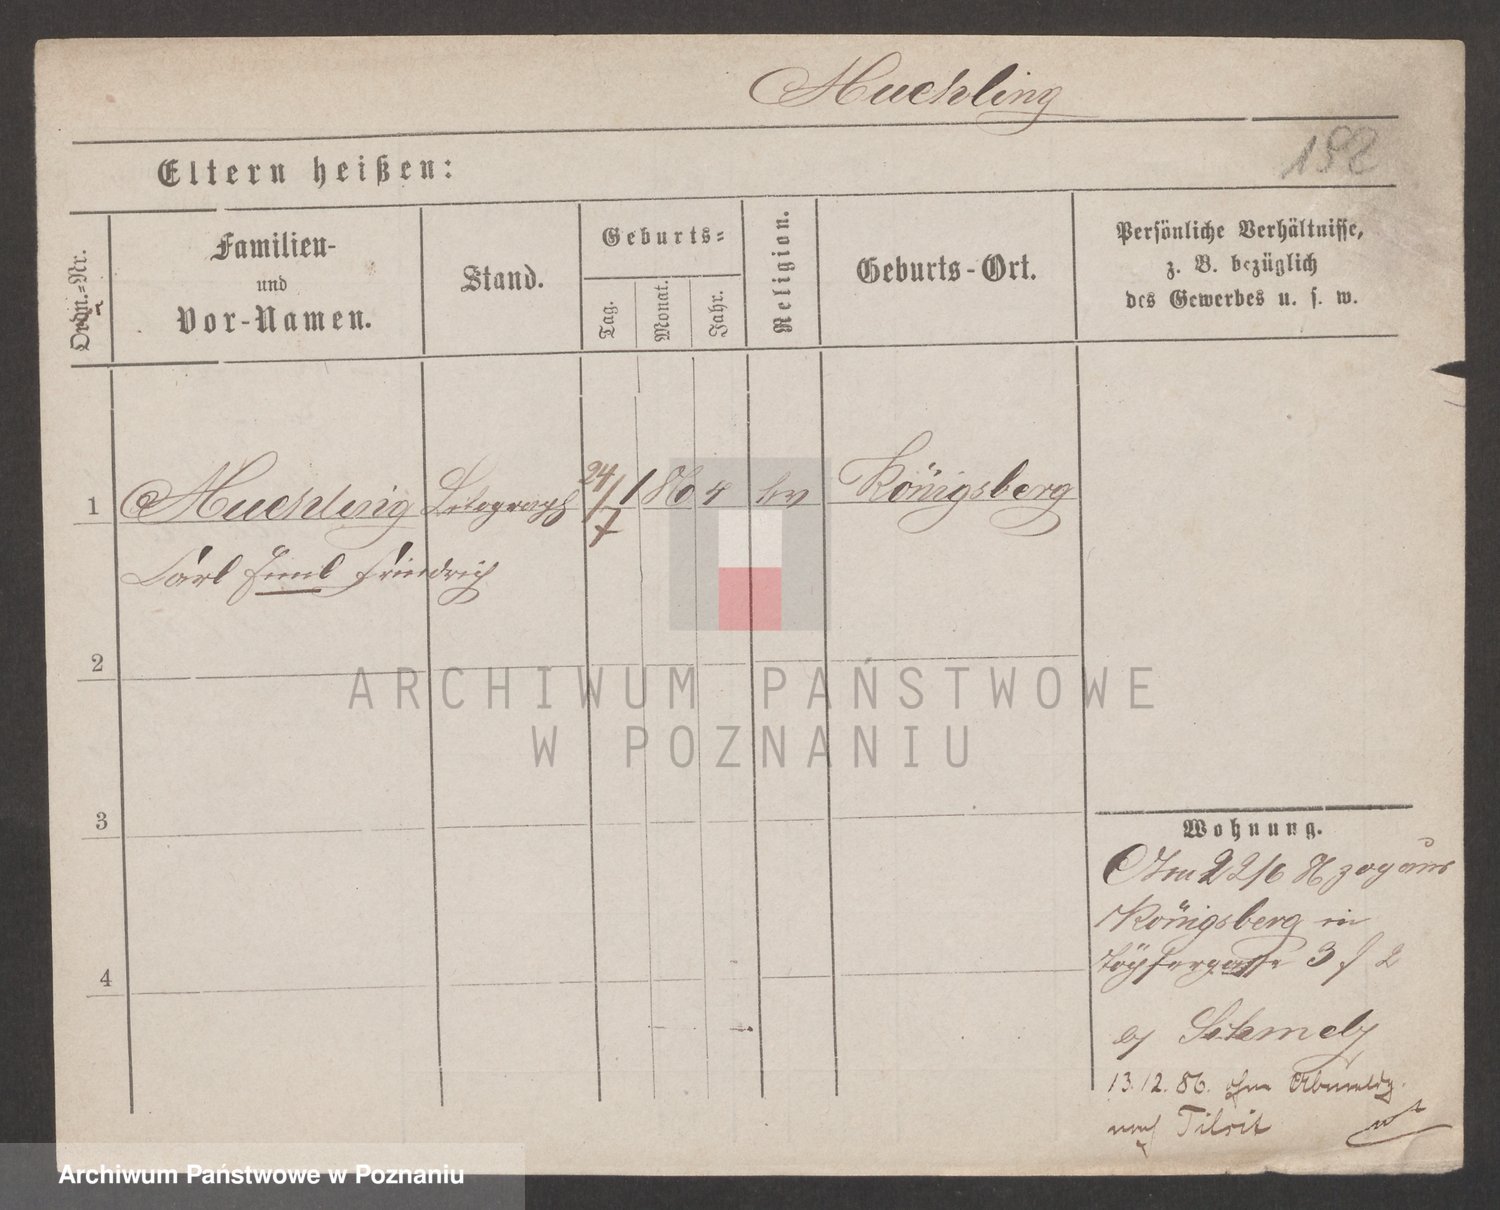 Muehling
192
Eltern heißen:
Ordn.-Nr.
Familien-
und
Vor-Namen.
Stand.
Geburts-
Tag.
Monat.
Jahr.
Religion.
Geburts-Ort.
Persönliche Verhältnisse,
z. B. bezüglich
des Gewerbes u. s. w.
1 Muehling Litograph 24/7 ev Königsberg
Carl Emil Friedrich
2
3
4
Wohnung.
Am 22/6 86 zog aus
Königsberg in
Töpfergasse 3 / 2
by
13.12.86. ohne Abmeldg.
nach Tilsit
ARCHIWUM PAŃSTWOWE
W POZNANIU
Archiwum Państwowe w Poznaniu